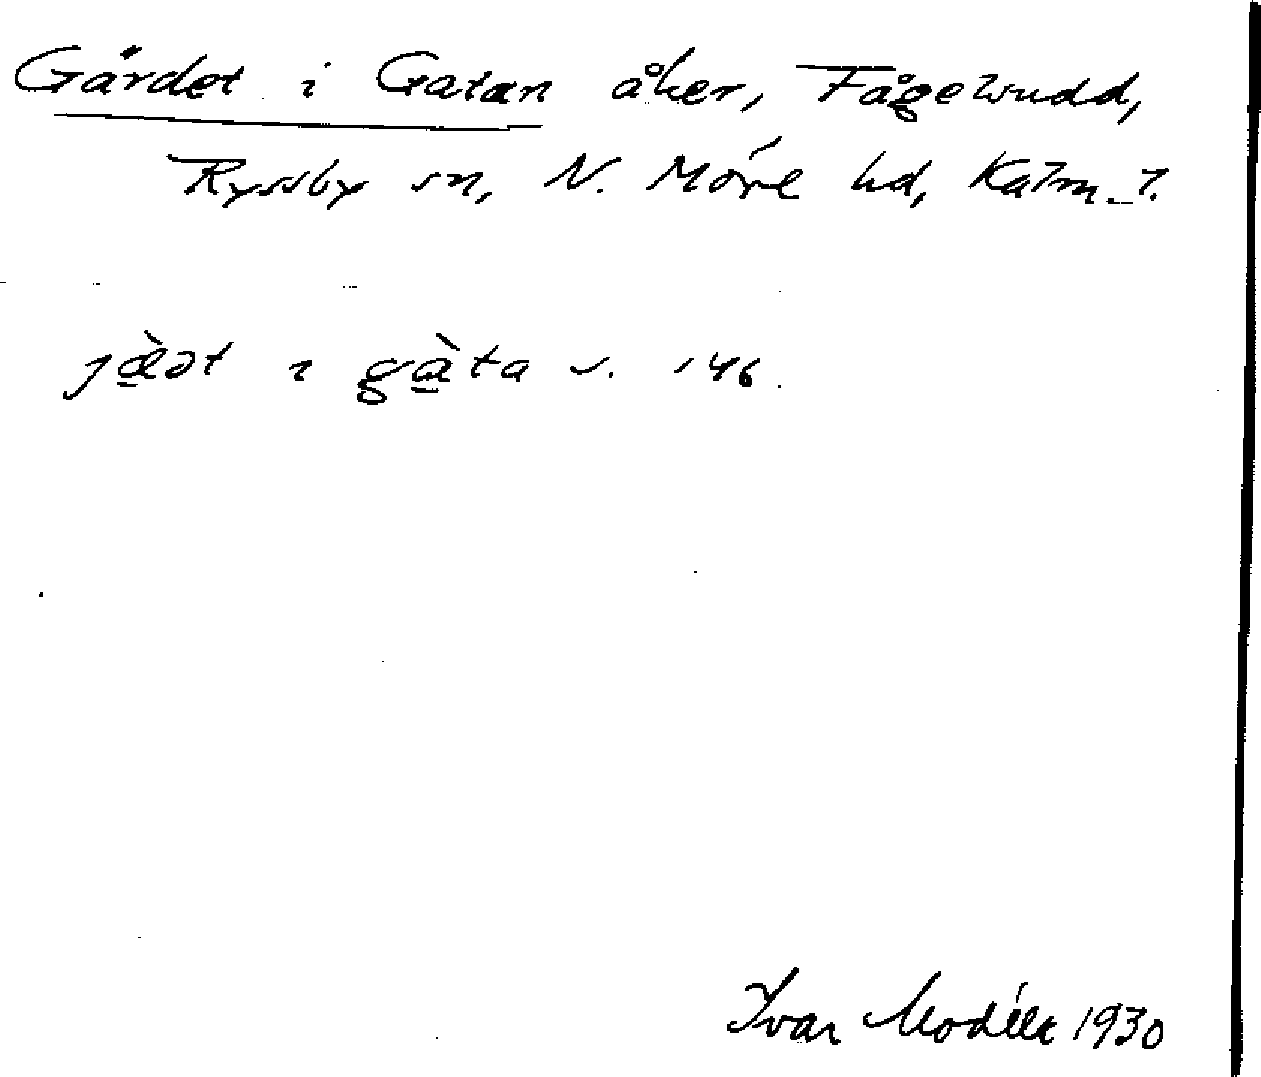 Gärdet i Gatan åker, Fågelsudd,
Ryssby sn, N. Möre hd, Kalm. l.
jæ̀ət ı gàta s. 146.
Ivar Modéer 1930